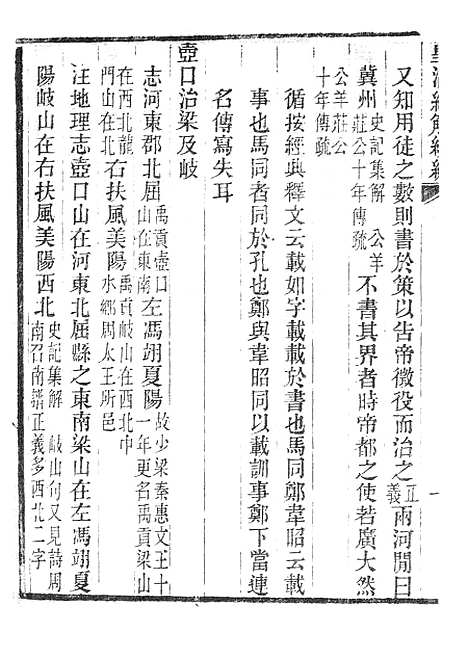 皇清經解續編
一
又知用徒之數則書於策以告帝徵役而治之正義兩河閒曰
冀州史記集解 公羊莊公十年傳疏不書其界者時帝都之使若廣大然
公羊莊公十年傳疏
循按經典釋文云載如字載載於書也馬同鄭韋昭云載
事也馬同者同於孔也鄭與韋昭同以載訓事鄭下當連
名傳寫失耳
壺口治梁及岐
志河東郡北屈禹貢壺口山在東南左馮翊夏陽故少梁秦惠文王十一年更名禹貢梁山
在西北龍門山在北右扶風美陽禹貢岐山在西北中水鄉周太王所邑
注地理志壺口山在河東北屈縣之東南梁山在左馮翊夏
陽岐山在右扶風美陽西北史記集解 岐山句又見詩周南召南譜正義多西北二字